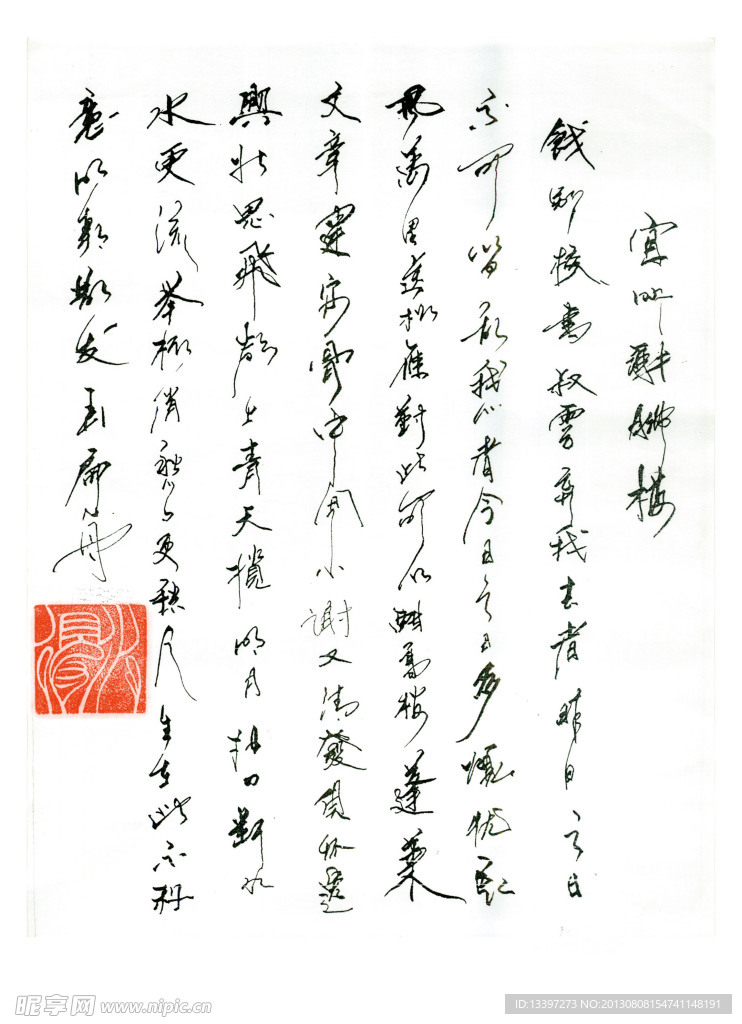 宣州謝朓樓
餞別校書叔雲棄我去者昨日之日
不可留亂我心者今日之日多煩忧長
風萬里送秋雁對此可以酣高樓蓬萊
文章建安骨中間小謝又清發俱怀逸
興壯思飛欲上青天攬明月抽刀斷水
水更流舉杯消愁愁更愁人生在世不稱
意明朝散发弄扁舟
昵享网 www.nipic.cn
ID:13397273 NO:20130808154741148191